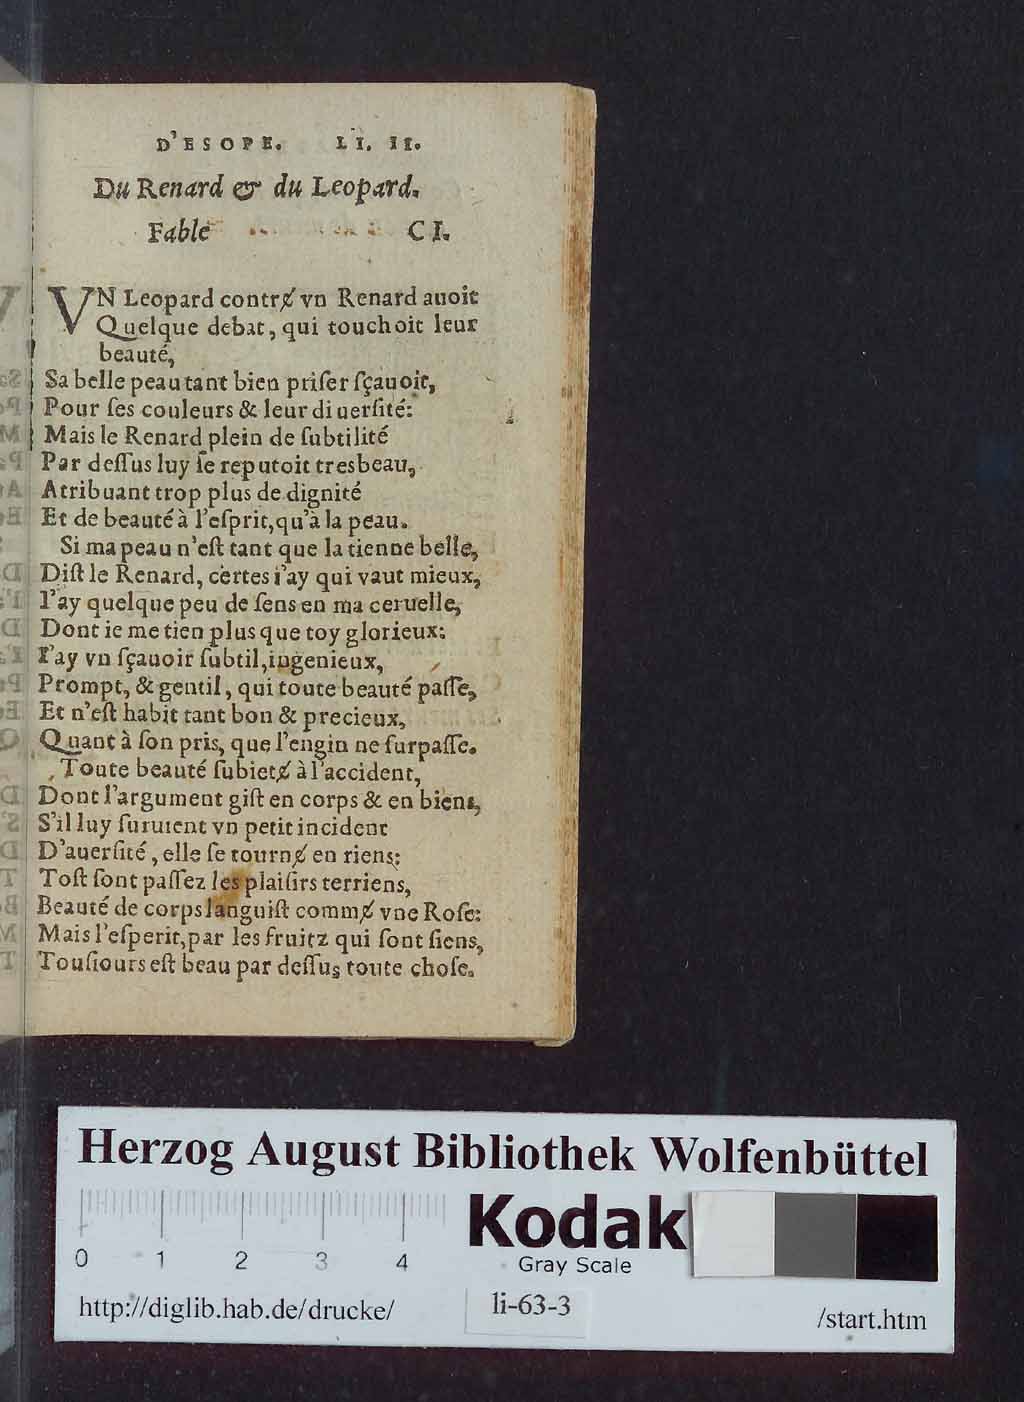 D'ESOPE. LI. II.
Du Renard & du Leopard.
Fable CI.
VN Leopard contrɇ vn Renard auoit
Quelque debat, qui touchoit leur
beauté,
Sa belle peau tant bien priſer ſçauoit,
Pour ſes couleurs & leur diuerſité:
Mais le Renard plein de ſubtilité
Par deſſus luy ſe reputoit tresbeau,
Atribuant trop plus de dignité
Et de beauté à l'eſprit, qu'à la peau.
Si ma peau n'eſt tant que la tienne belle,
Diſt le Renard, certes i'ay qui vaut mieux,
I'ay quelque peu de ſens en ma ceruelle,
Dont ie me tien plus que toy glorieux:
I'ay vn ſçauoir ſubtil, ingenieux,
Prompt, & gentil, qui toute beauté paſſe,
Et n'eſt habit tant bon & precieux,
Quant à ſon pris, que l'engin ne ſurpaſſe.
Toute beauté ſubietɇ à l'accident,
Dont l'argument giſt en corps & en biens,
S'il luy ſuruient vn petit incident
D'auerſité, elle ſe tournɇ en riens:
Toſt ſont paſſez les plaiſirs terriens,
Beauté de corps languiſt commɇ vne Roſe:
Mais l'eſperit, par les fruitz qui ſont ſiens,
Touſiours eſt beau par deſſus toute choſe.
Herzog August Bibliothek Wolfenbüttel
0 1 2 3 4
Kodak
Gray Scale
http://diglib.hab.de/drucke/ li-63-3 /start.htm